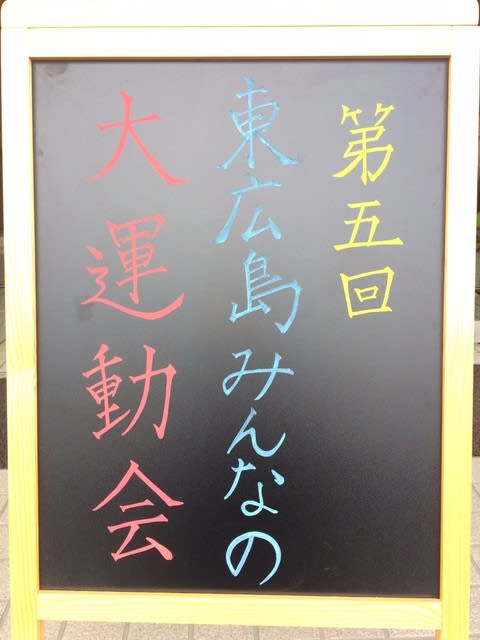 第五回
東広島みんなの
大運動会